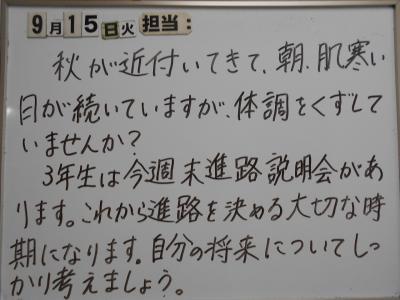 9月15日火担当:
秋が近付いてきて、朝、肌寒い
日が続いていますが、体調をくずして
いませんか?
3年生は今週末進路説明会があ
ります。これから進路を決める大切な時
期になります。自分の将来についてしっ
かり考えましょう。